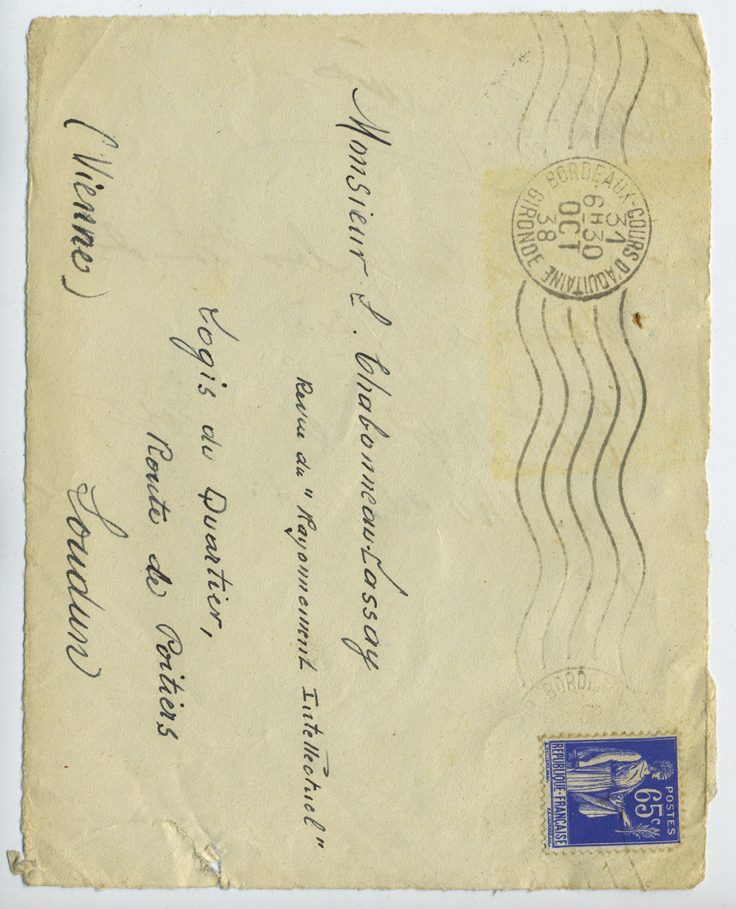 BORDEAUX-COURS D'AQUITAINE
31
6H30
OCT
38
GIRONDE
BORDE
POSTES
65c
REPUBLIQUE-FRANÇAISE
Monsieur L. Charbonneau-Lassay
Revue du "Rayonnement Intellectuel"
Logis du Quartier,
Route de Poitiers
Loudun
(Vienne)